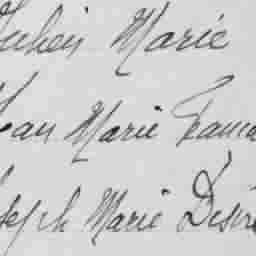 Julien Marie
Jean Marie Franco
Joseph Marie Désiré